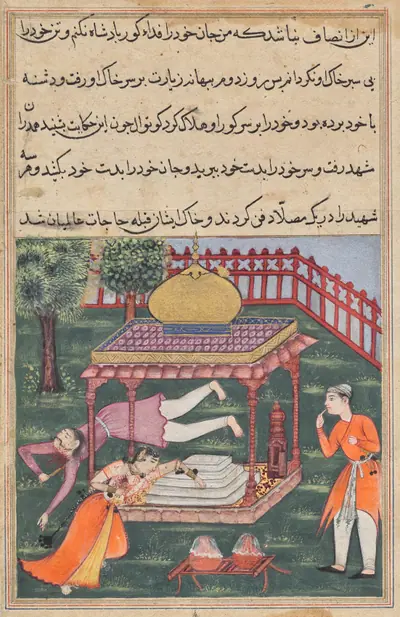 این از انصاف نباشد که من جان خود را فداء کور بادشاه نکنم و تن خود را
بی سبر خاک او نگردانم پس روز دوم بهانه زیارت بر سر خاک او رفت و دشنه
با خود برده بود و خود را بر سر کور او هلاک کرد کوتوال چون این حکایت شنید همدران
شهد رفت و سر خود را بدست خود ببرید و جان خود را بدست خود بکند و هر سه
شهید را در یک مصلا دفن کردند و خاک ایشان قبله حاجات عالمیان شد